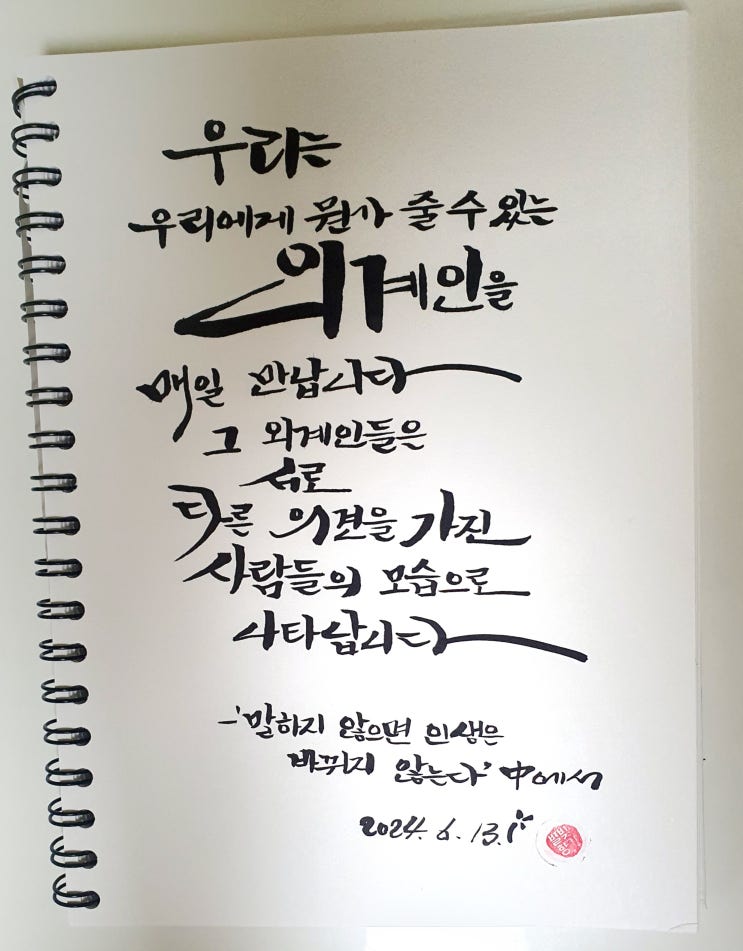 우리는
우리에게 뭔가 줄 수 있는
외계인을
매일 만납니다
그 외계인들은
서로
다른 의견을 가진
사람들의 모습으로
나타납니다
-'말하지 않으면 인생은
바뀌지 않는다' 中에서
2024. 6. 13.